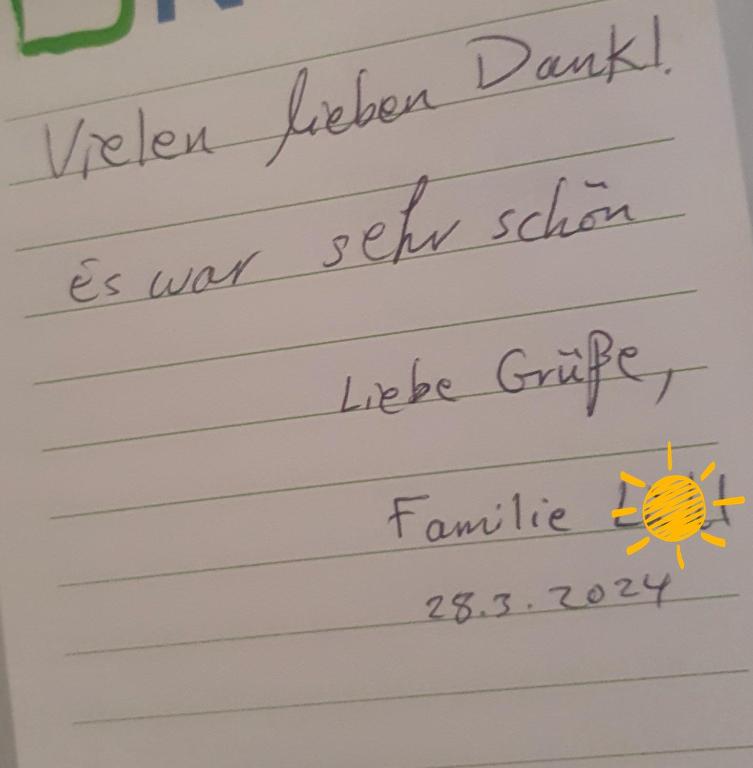 Vielen lieben Dank!.
Es war sehr schön
Liebe Grüße,
Familie
28.3.2024